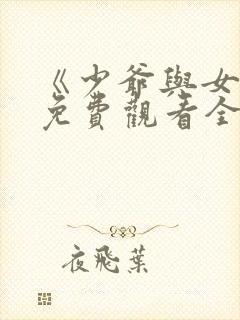 《少爺與女
免費觀看全
夜飛葉